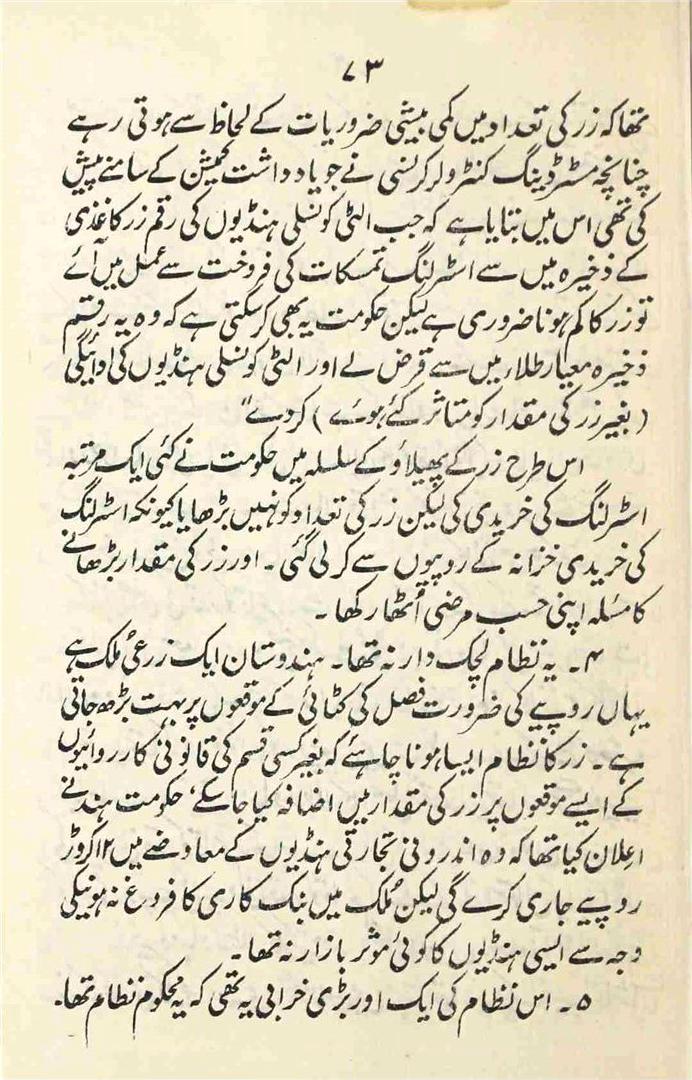 ۷۳
تھا کہ زر کی تعداد میں کمی بیشی ضروریات کے لحاظ سے ہوتی رہے
چنانچہ مسٹر ڈیننگ کنٹرولر کرنسی نے جو یادداشت کمیشن کے سامنے پیش
کی تھی اس میں بتایا ہے کہ جب الٹی کونسلی ہنڈیوں کی رقم زر کاغذی
کے ذخیرہ میں سے اسٹرلنگ تمسکات کی فروخت سے عمل میں آئے
تو زر کا کم ہونا ضروری ہے لیکن حکومت یہ بھی کر سکتی ہے کہ وہ یہ رقم
ذخیرہ معیار طلاء میں سے قرض لے اور الٹی کونسلی ہنڈیوں کی ادائیگی
(بغیر زر کی مقدار کو متاثر کئے ہوئے) کردے"
اس طرح زر کے پھیلاؤ کے سلسلہ میں حکومت نے کئی ایک مرتبہ
اسٹرلنگ کی خریدی کی لیکن زر کی تعداد کو نہیں بڑھایا کیونکہ اسٹرلنگ
کی خریدی خزانہ کے روپیوں سے کر لی گئی ۔ اور زر کی مقدار بڑھانے
کا مسئلہ اپنی حسب مرضی اُٹھا رکھا ۔
۴ ۔ یہ نظام لچک دار نہ تھا ۔ ہندوستان ایک زرعی مُلک ہے
یہاں روپیے کی ضرورت فصل کی کٹائی کے موقعوں پر بہت بڑھ جاتی
ہے ۔ زر کا نظام ایسا ہونا چاہئے کہ بغیر کسی قسم کی قانونی کارروائیوں
کے ایسے موقعوں پر زر کی مقدار میں اضافہ کیا جا سکے ، حکومت ہند نے
اعلان کیا تھا کہ وہ اندرونی تجارتی ہنڈیوں کے معاوضے میں ۱۲ کروڑ
روپیے جاری کرے گی لیکن مُلک میں بنک کاری کا فروغ نہ ہونیکی
وجہ سے ایسی ہنڈیوں کا کوئی موثر بازار نہ تھا ۔
۵ ۔ اس نظام کی ایک اور بڑی خرابی یہ تھی کہ یہ محکوم نظام تھا ۔